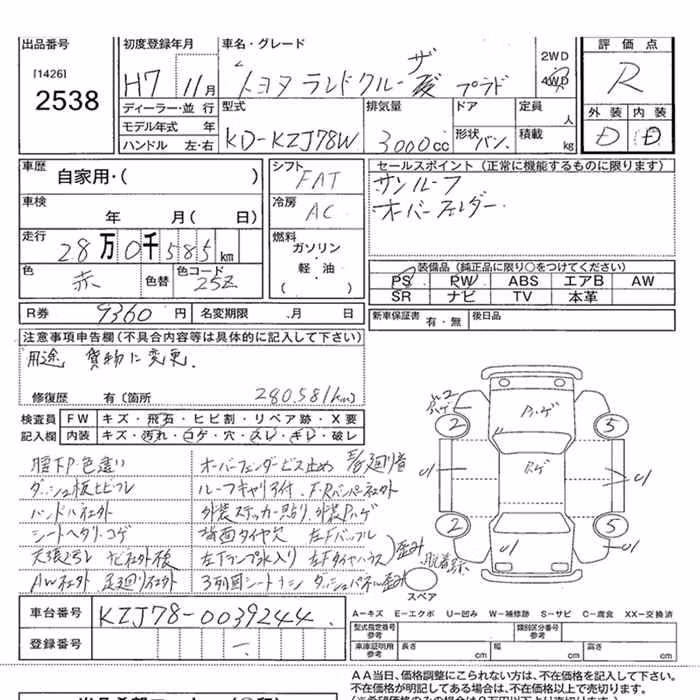 出品番号
[1426]
2538
初度登録年月
H7 11月
車名・グレード
トヨタ ランドクルーザー プラド
2WD
4WD
評価点
R
外装 内装
D D
ディーラー・並行
モデル年式 年
ハンドル 左・右
型式
KD-KZJ78W
排気量
3000cc
ドア
形状 バン.
定員 人
積載 kg
車歴
自家用・( )
車検
年 月( 日)
走行
28万0千585km
色
赤
色替
色コード
25Z
シフト
FAT
冷房
AC
燃料
ガソリン・
軽・油
( )
セールスポイント(正常に機能するものに限ります)
サンルーフ
オーバーフェンダー.
装備品(純正品に限り○をつけてください)
PS PW ABS エアB AW
SR ナビ TV 本革
R券 9360円
名変期限 月 日
新車保証書 有・無
後日品
注意事項申告欄(不具合内容等は具体的に記入して下さい)
用途 貨物に変更.
修復歴 有(箇所
280.581km)
検査員 FW キズ・飛石・ヒビ割・リペア跡・X要
記入欄 内装 キズ・汚れ・コゲ・穴・スレ・キレ・破レ
腰下P・色違い
ダッシュ板ヒビワレ
ハンドル社外
シートヘタリ・コゲ
天張汚レ ナビ社外検
AW社外 足廻り社外
オーバーフェンダービス止め
ルーフキャリア付 F・Rバンパー社外
外装ステッカー貼り 外装Pハゲ
背面タイヤ欠
左Fランプ水入り 左Fタイヤハウス
3列目シートナシ ダッシュパネル歪み
歪み
Pハゲ
ハゲ
2 5
U1 U1
2 5
U1 U1
スペア
車台番号 KZJ78-0039244
登録番号 -
A-キズ E-エクボ U-凹み W-補修跡 S-サビ C-腐食 XX-交換済
型式指定番号
参考
類別区分番号
参考
車庫証明用
参考
長さ cm
幅 cm
高さ cm
AA当日、価格調整にこられない方は、不在価格を記入して下さい。
不在価格が明記してある場合は、不在価格以上で売切ります。